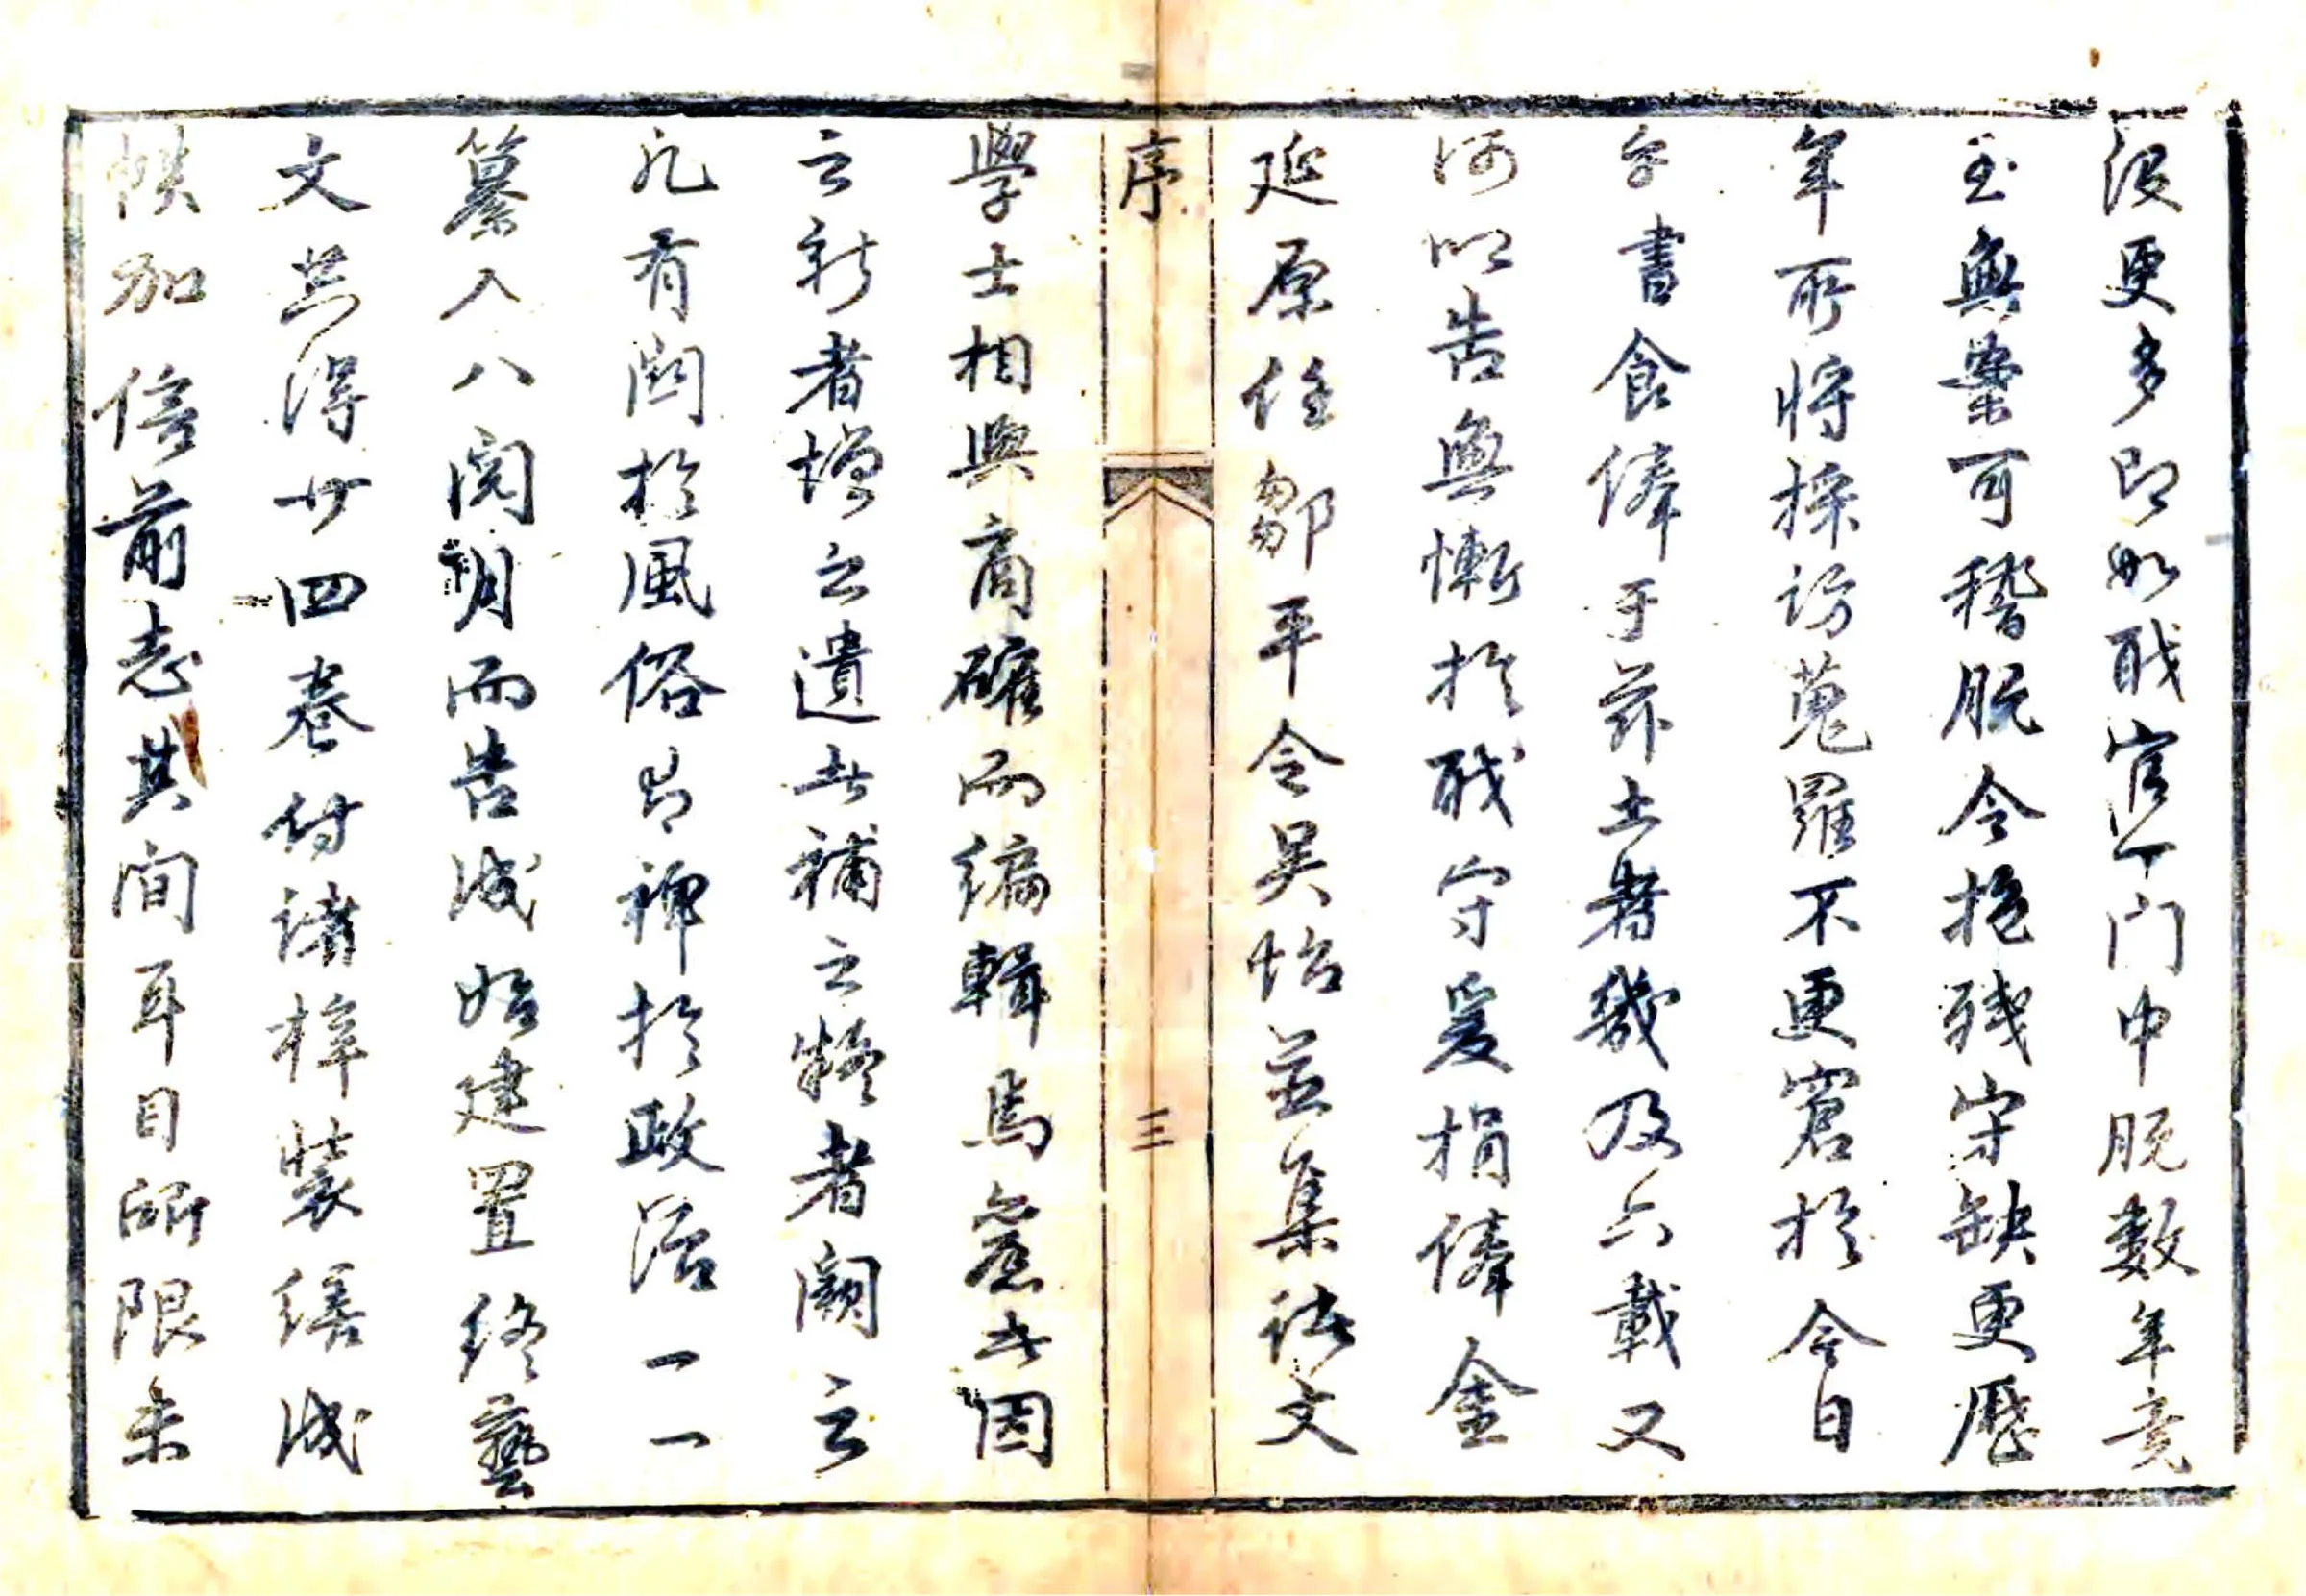 没更多即如職官一門中脱數年竟
至無案可稽脱令抱殘守缺更歷
年所將採訪蒐羅不更窘於今日
乎書食俸于茲土者幾及六載又
何以告無慚於職守爰捐俸金
延原任鄒平令吴怡並集諸文
序
三
學士相與商確而編輯焉舊者因
之新者增之遺者補之疑者闕之
凡有關於風俗者裨於政治一一
纂入八閱月而告成始建置終藝
文共得廿四卷付諸梓裝繕成
帙加倍前志其間耳目所限未